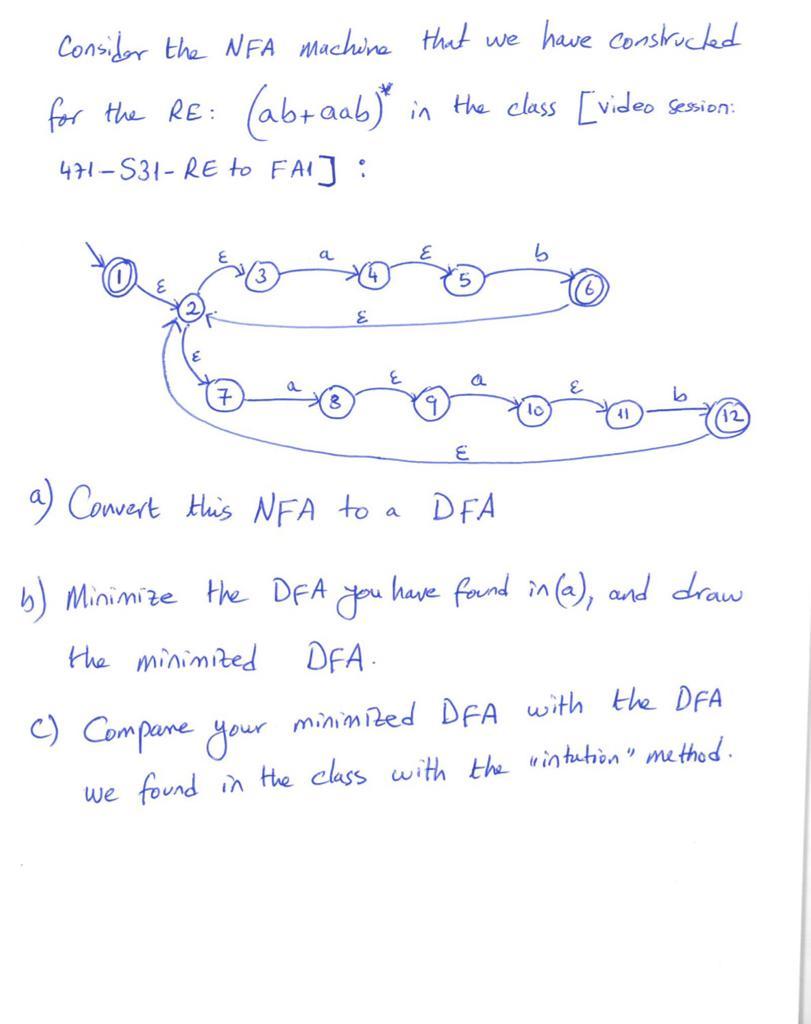 Consider the NFA machine that we have constructed
for the RE: (ab+aab)* in the class [video session:
471-S31-RE to FA1] :
ε a ε b
1 ε 3 4 5 6
2 ε
ε a ε a ε b
7 8 9 10 11 12
ε
a) Convert this NFA to a DFA
b) Minimize the DFA you have found in (a), and draw
the minimized DFA.
c) Compare your minimized DFA with the DFA
we found in the class with the "intution" method.